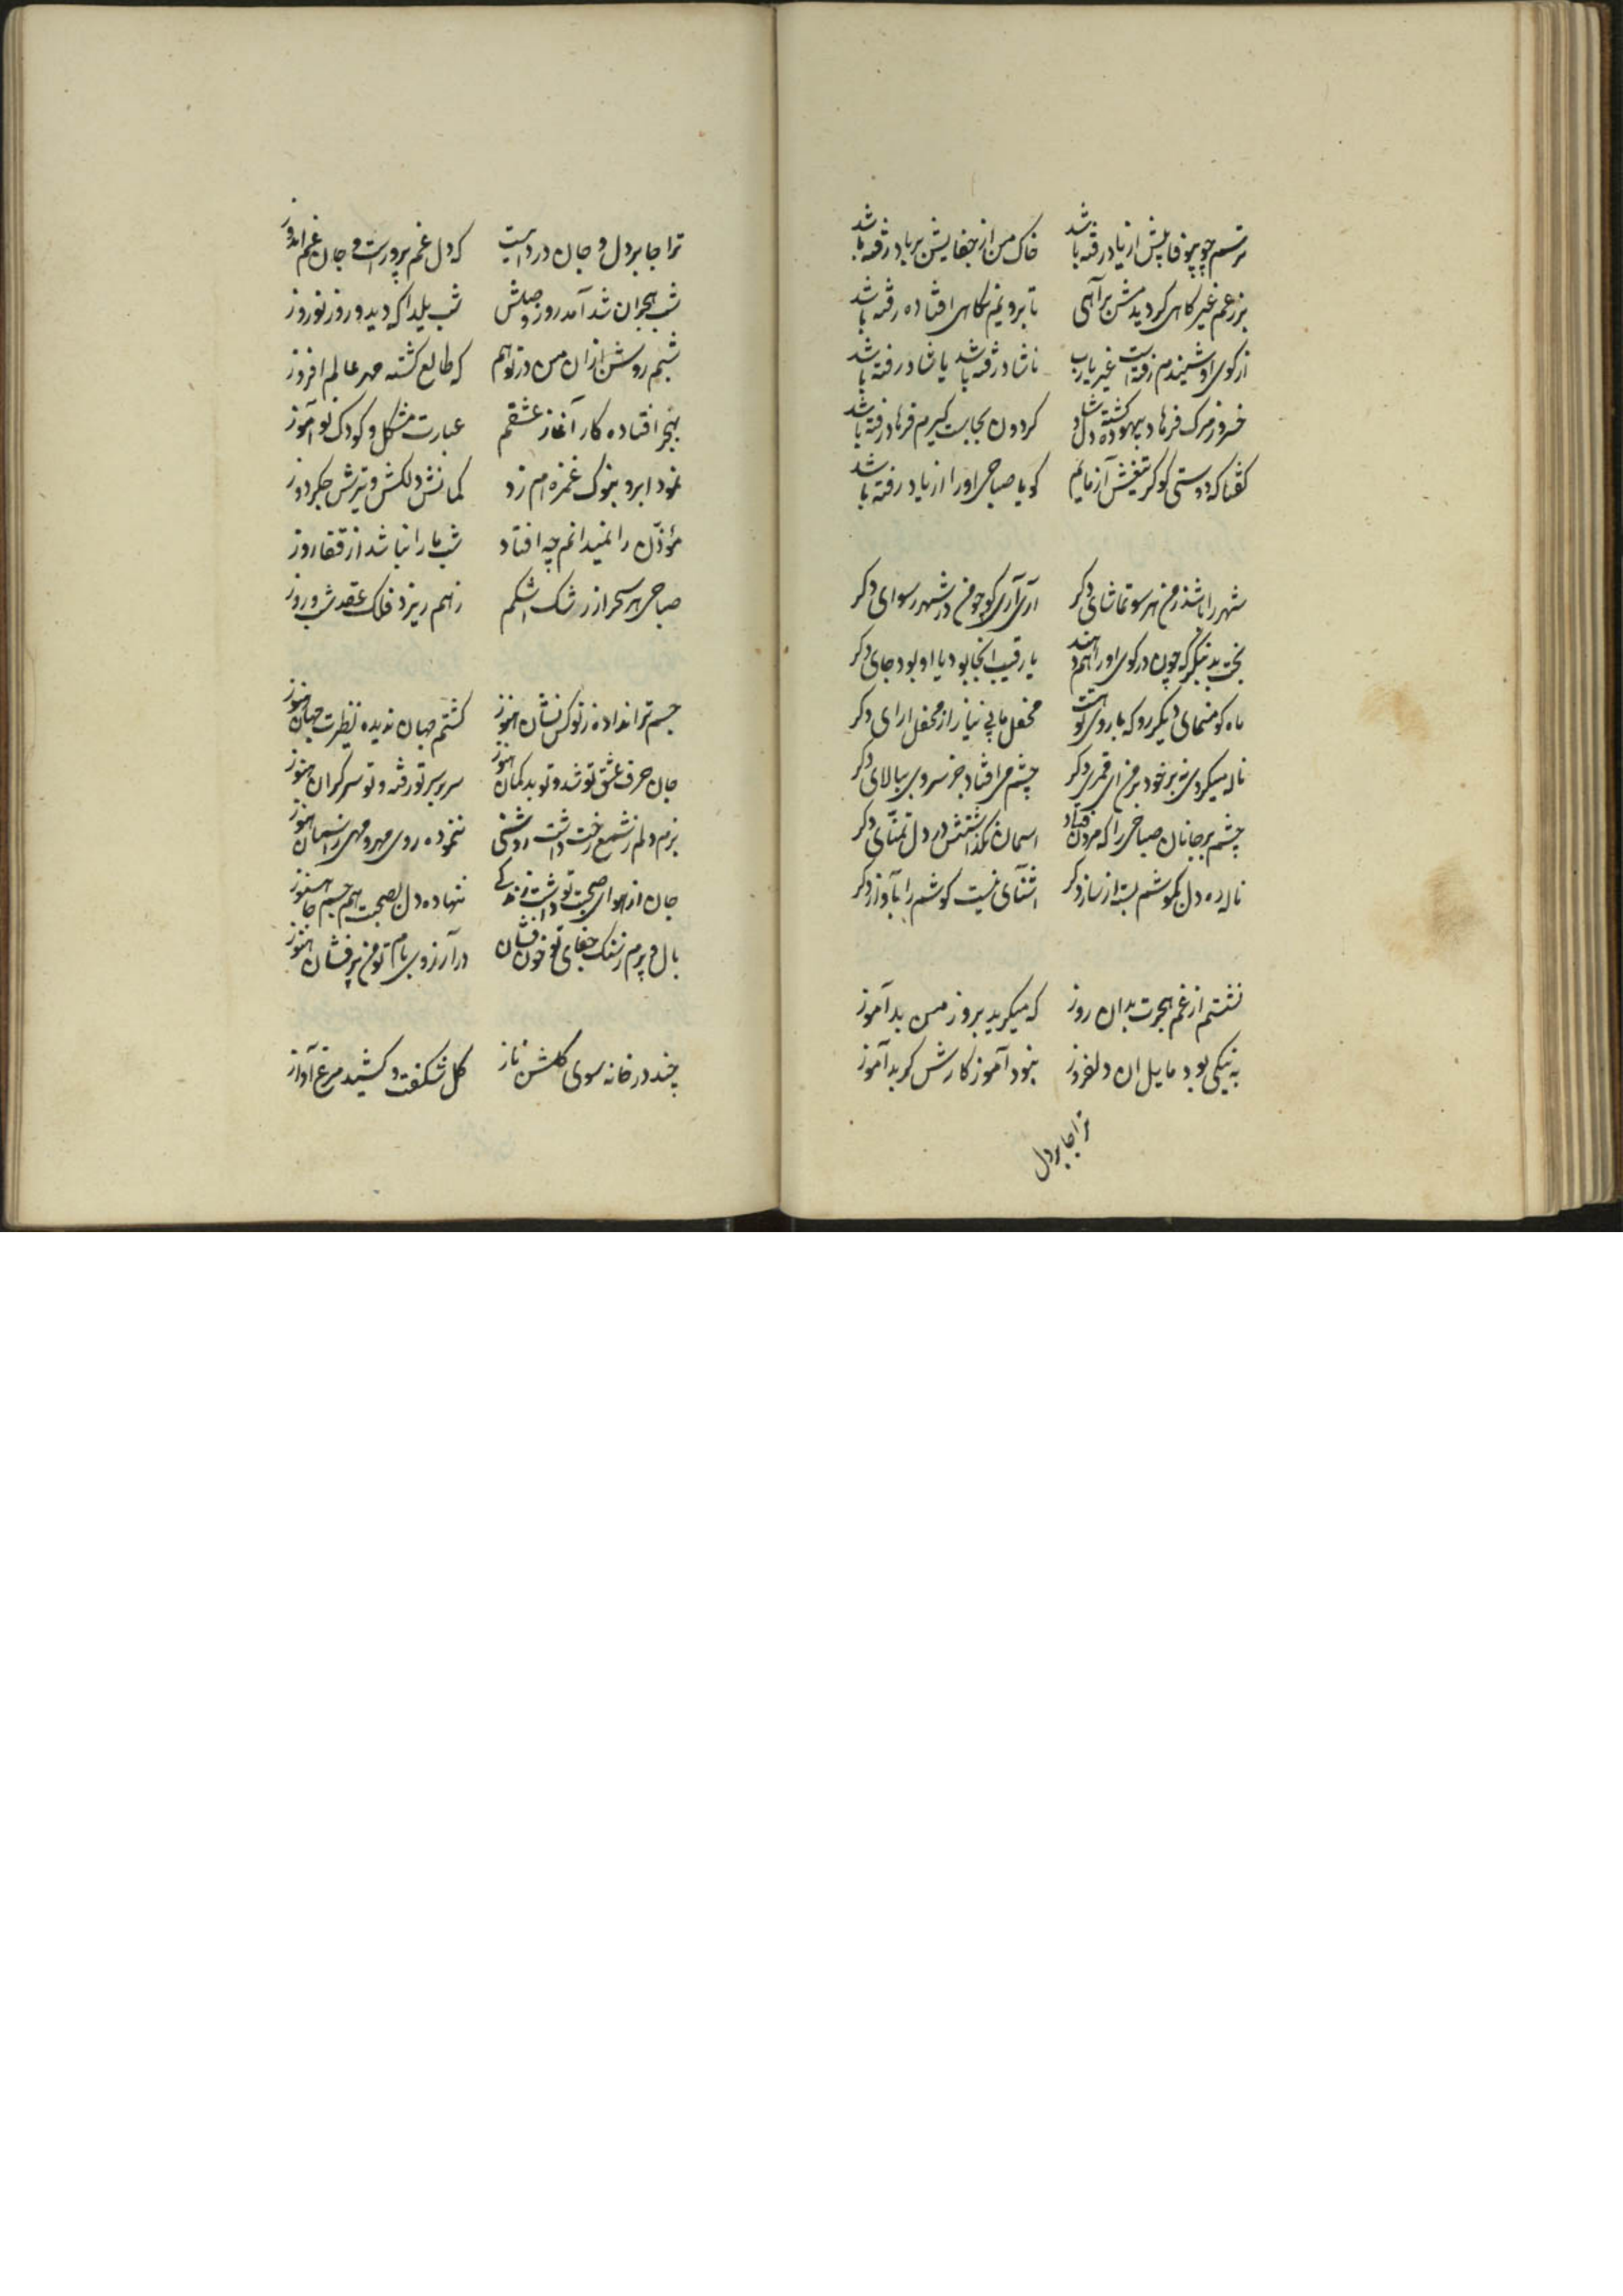 ترسم چو بیوفاییش از یاد رفته باشد خاک من از جفایش بر باد رفته باشد
بزعم غیر کاهی کردیدمش برآهی تا بر ویم نکاهی افتاده رفته باشد
از کوی او شنیدم رفته است غیر یارب ناشاد رفته باشد یا شاد رفته باشد
خسرو ز مرک فرهاد بیهوده کشته دلشاد کردون بجاست کیرم فرهاد رفته باشد
کفتا که دوستی کو کز تیغش آزمایم کویا صباحی او را از یاد رفته باشد
شهر را باشد ز من هر سو تماشای دکر آری آری کو چو من در شهر رسوای دکر
بخت بد بنکر که چون در کوی او راهم دهند یا رقیب آنجا بود یا او بود جای دکر
ماه کو منمای دیکر رو که با روی تو هست محفل ما بی نیاز از محفل ارای دکر
ناله میکردی نه بر خود بر من ای قمری دکر چشم می افتاد جز سروی ببالای دکر
چشم بر جانان صباحی را که مردن فتاد اسمان نکذاشتش در دل تمنای دکر
ناله ده دل بکوشم بسته از ساز دکر اشنای نیست کوشم را بآواز دکر
نشستم از غم هجرت بدان روز که میکرید بروز من بد آموز
به نیکی بود مایل ان دلفروز نبود آموز کارش کر بد آموز
ترا جا بر دل
ترا جا بر دل و جان در داست که دل غم پرور است و جان غم اندوز
شب هجران شد آمد روز وصلش شب یلدا که دید و روز نوروز
شبم روشن ازان من در توهم که طالع کشته مهر عالم افروز
بهجر افتاده کار آغاز عشقم عبارت مشکل و کودک نو آموز
نمود ابرو بنوک غمزه ام زد کمانش دلکش و تیرش جکر دوز
مؤذن را نمیدانم چه افتاد شب ما را نباشد از قفا روز
صباحی هر سحر از رشک اشکم ز هم ریزد فلک عقد شب و روز
جسم ترا نداده ز تو کس نشان هنوز کشتم جهان ندیده نظیرت جهان هنوز
جان صرف عشق تو شد و تو بدکمان هنوز سر بر سر تو رفته و تو سرکران هنوز
بزم دلم ز شمع رخت داشت روشنی ننموده روی مهر و مهی ز اسمان هنوز
جان از هوای صحبت تو داشت زندکی ننهاده دل بصحبت هم جسم و جان هنوز
بال و پرم ز سنک جفای تو خون فشان در آرزوی بام تو من پر فشان هنوز
چند در خانه سوی کلشن ناز کل شکفت و کشید مرغ آواز